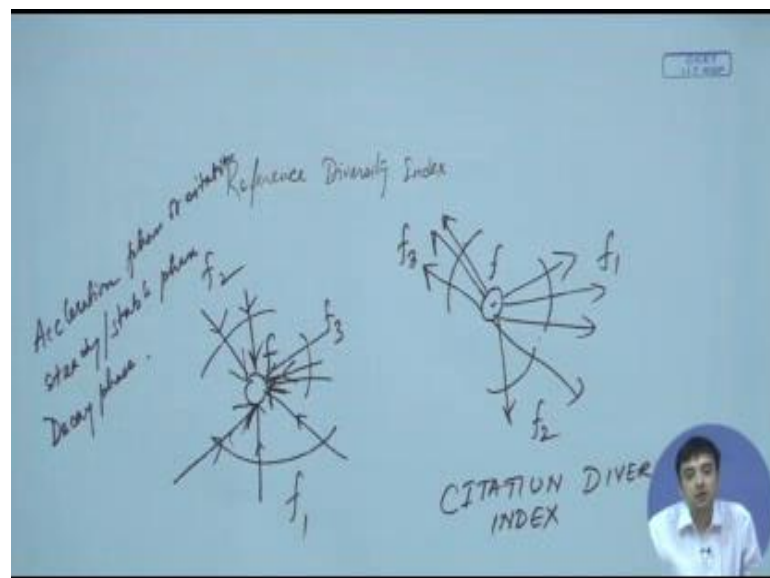 Reference Diversity Index
Accleration phase
steady/stable phase
Decay phase.
f2
f
f3
f1
f3
f
f1
f2
CITATION DIVER
INDEX